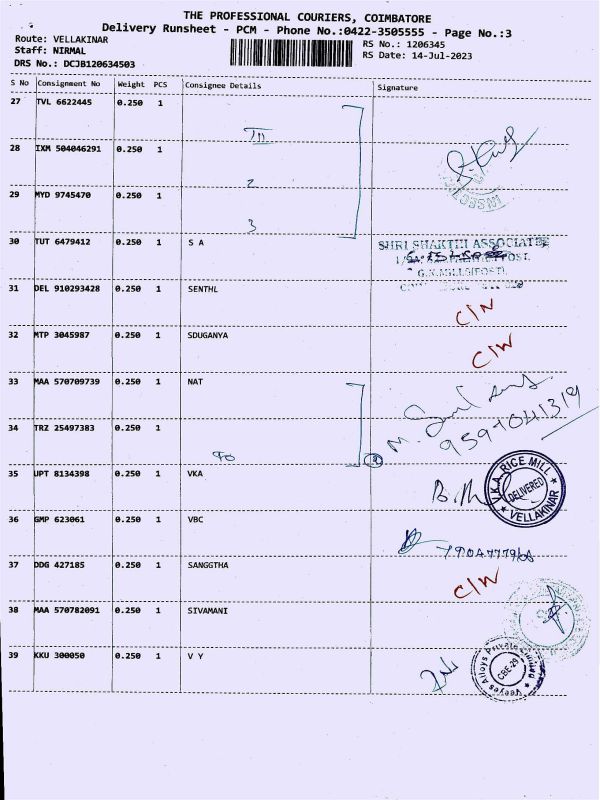 THE PROFESSIONAL COURIERS, COIMBATORE
Delivery Runsheet - PCM - Phone No.:0422-3505555 - Page No.:3
Route: VELLAKINAR
Staff: NIRMAL
DRS No.: DCJB120634503
RS No.: 1206345
RS Date: 14-Jul-2023
S No Consignment No Weight PCS Consignee Details Signature
27 TVL 6622445 0.250 1
28 IXM 504046291 0.250 1
2
29 MYD 9745470 0.250 1
3
30 TUT 6479412 0.250 1 S A
SHRI SHAKTHI ASSOCIATES
G.N.MILLS(POST),
31 DEL 910293428 0.250 1 SENTHL
C/N
32 MTP 3045987 0.250 1 SDUGANYA
C/W
33 MAA 570709739 0.250 1 NAT
M.
9597041319
34 TRZ 25497383 0.250 1
35 UPT 8134398 0.250 1 VKA
VKA RICE MILL
DELIVERED
VELLAKINAR
36 GMP 623061 0.250 1 VBC
37 DDG 427185 0.250 1 SANGGTHA
C/W
38 MAA 570782091 0.250 1 SIVAMANI
39 KKU 300050 0.250 1 V Y
Veeyes Alloys Private Limited
CBE-29